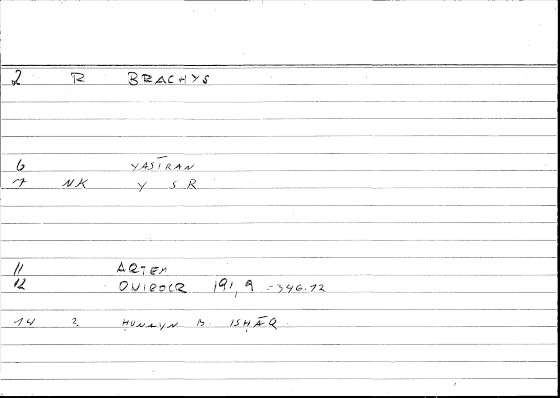 2 R BRACHYS
6 YASĪRAN
7 NK Y S R
11 ARTEM
12 ONIROCR 191,9 = 346.12
14 2 ḤUNAYN B. ISḤĀQ